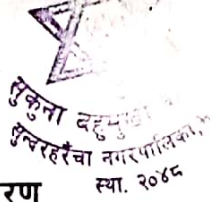 सुकुना बहुमुखी
सुन्दरहरैंचा नगरपालिका,
स्था. २०४८
रण